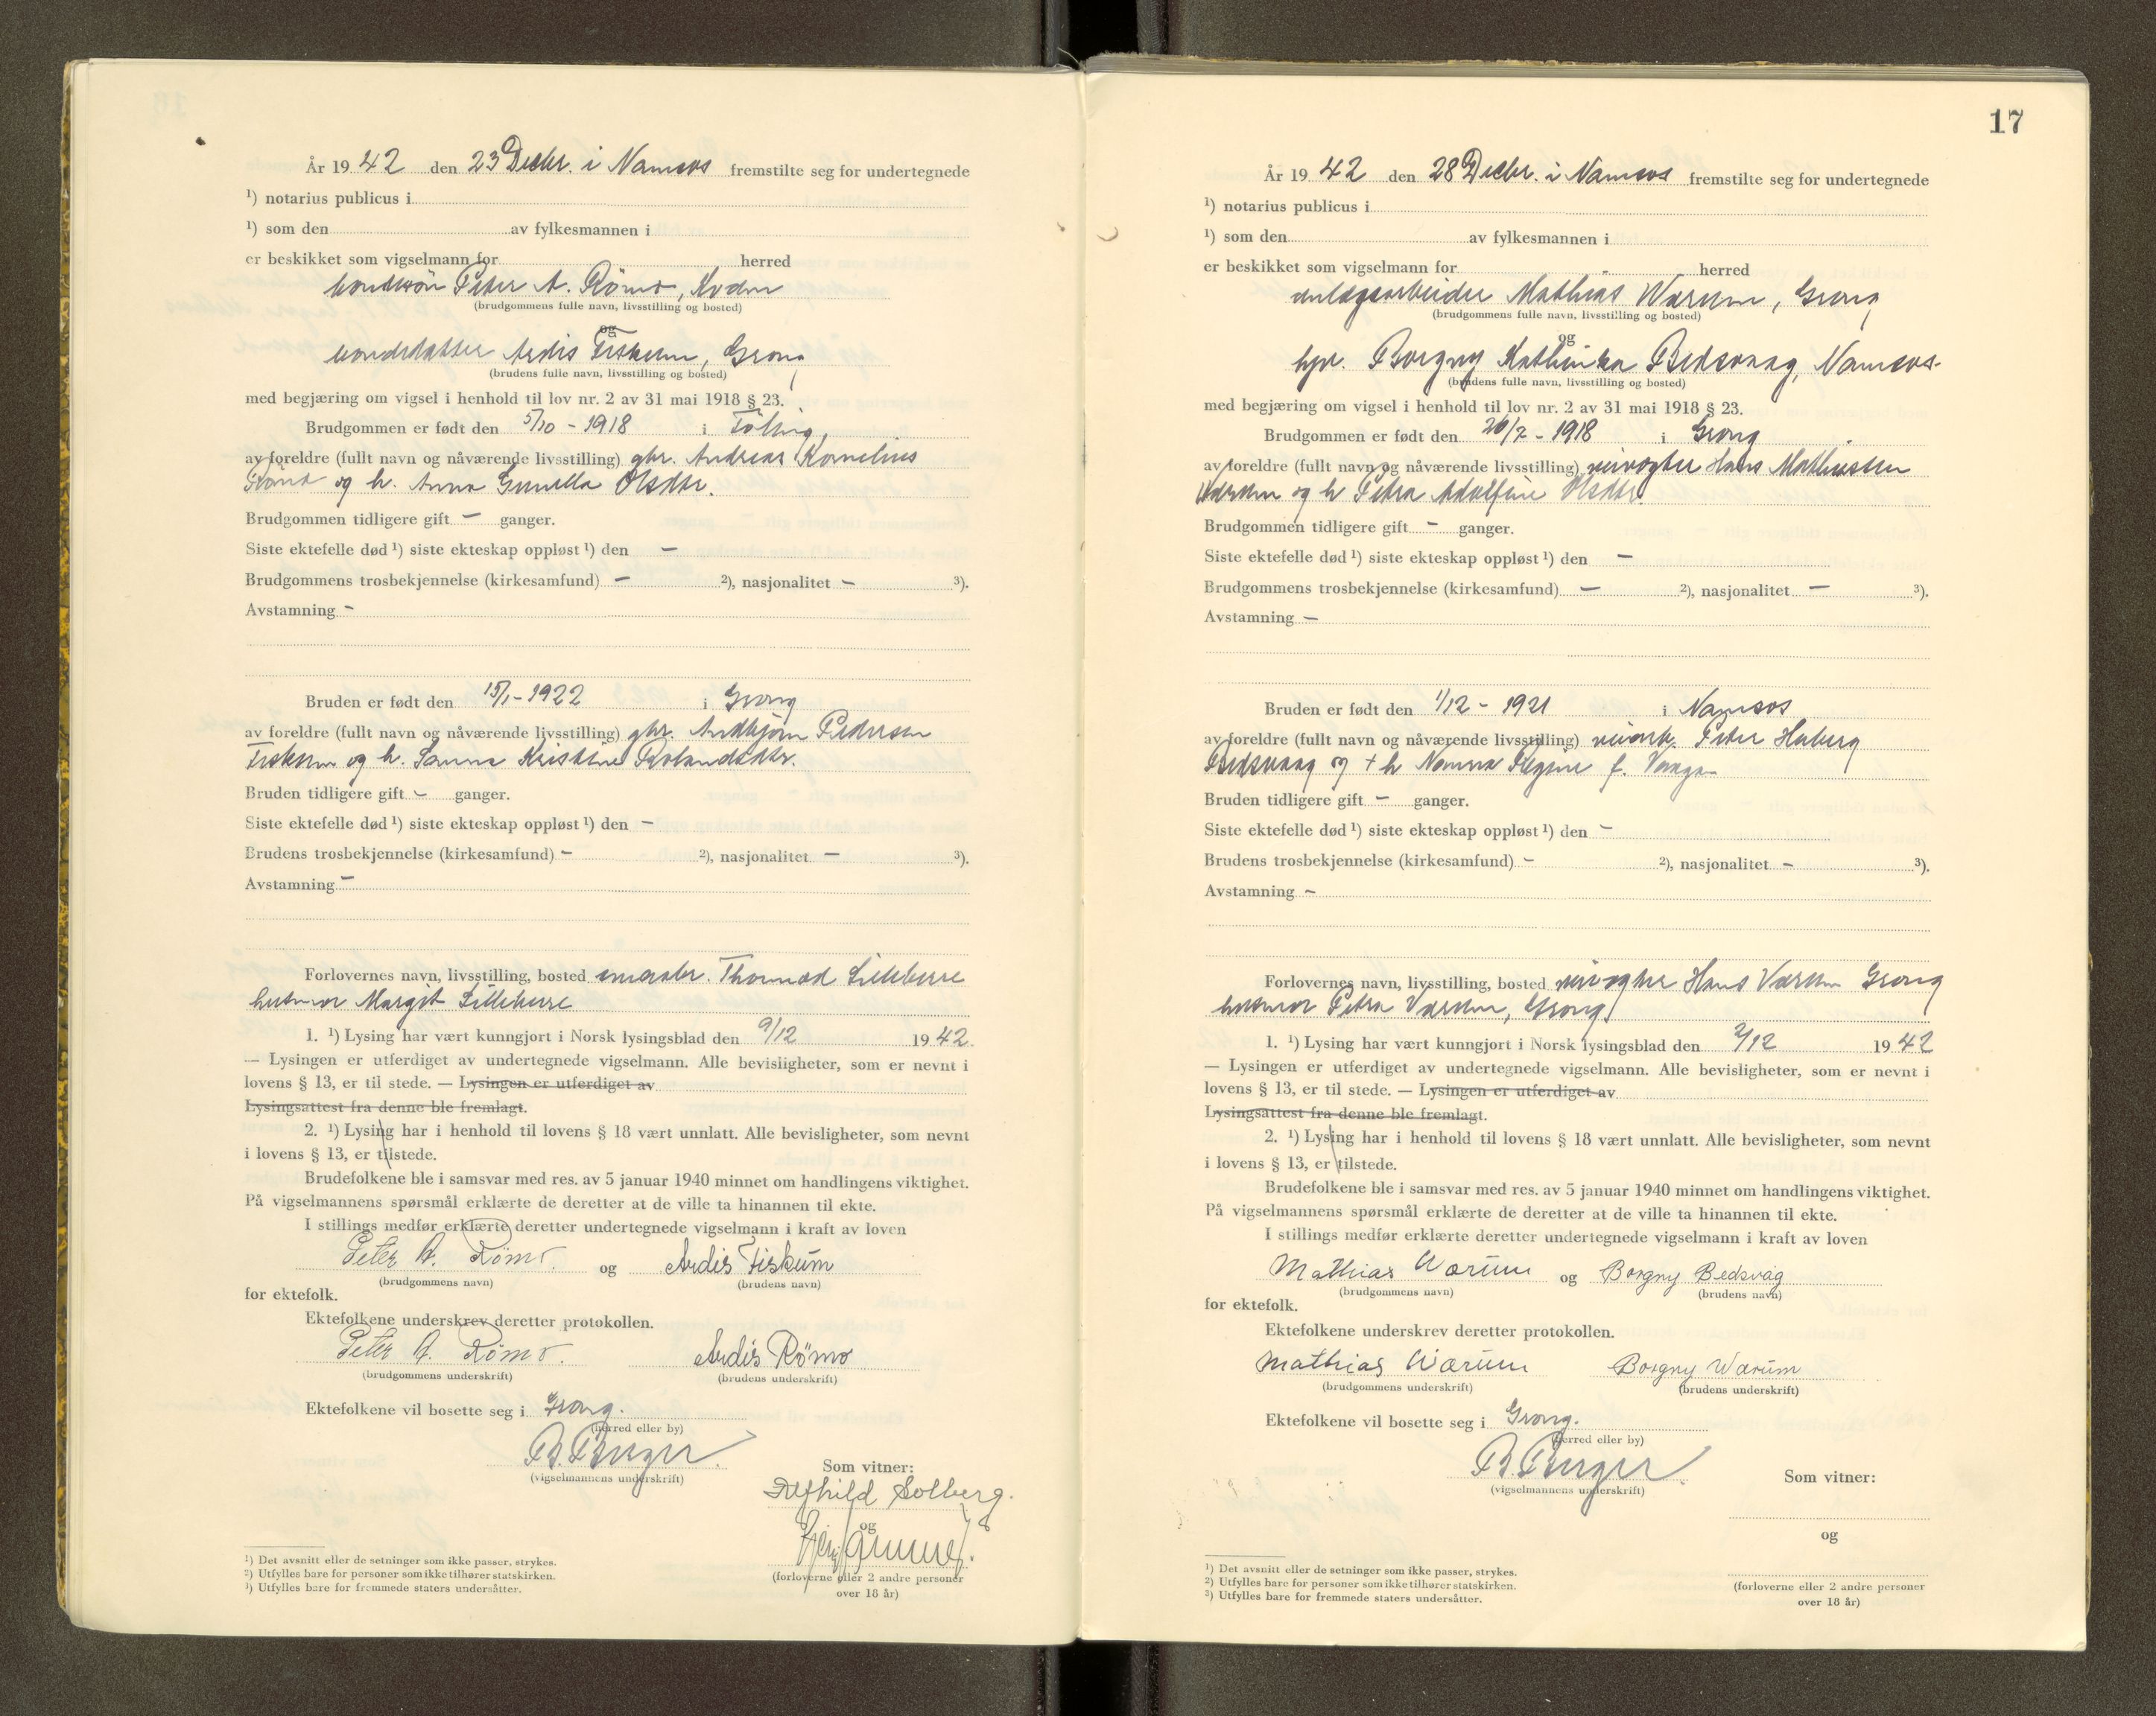 År 19 42 den 23 Decbr. i Namsos fremstilte seg for undertegnede
¹) notarius publicus i
¹) som den av fylkesmannen i
er beskikket som vigselmann for herred
bondesön Peter A. Römo, Kvam
(brudgommens fulle navn, livsstilling og bosted)
og
bondedatter Ardis Fiskum, Grong
(brudens fulle navn, livsstilling og bosted)
med begjæring om vigsel i henhold til lov nr. 2 av 31 mai 1918 § 23.
Brudgommen er født den 5/10 - 1918 i
av foreldre (fullt navn og nåværende livsstilling) gbr. Andreas Kornelius
og h. Anna Gunilla Olsdtr.
Brudgommen tidligere gift - ganger.
Siste ektefelle død ¹) siste ekteskap oppløst ¹) den -
Brudgommens trosbekjennelse (kirkesamfund) - ²), nasjonalitet - ³).
Avstamning -
Bruden er født den 15/1 - 1922 i Grong
av foreldre (fullt navn og nåværende livsstilling) gbr. Andbjörn Pedersen
Fiskum og h. Sanna Kristine Rolandsdtr.
Bruden tidligere gift - ganger.
Siste ektefelle død ¹) siste ekteskap oppløst ¹) den -
Brudens trosbekjennelse (kirkesamfund) - ²), nasjonalitet - ³).
Avstamning -
Forlovernes navn, livsstilling, bosted Thomas
husmor Margit
1. ¹) Lysing har vært kunngjort i Norsk lysingsblad den 9/12 19 42.
— Lysingen er utferdiget av undertegnede vigselmann. Alle bevisligheter, som er nevnt i
lovens § 13, er til stede. — Lysingen er utferdiget av
Lysingsattest fra denne ble fremlagt.
2. ¹) Lysing har i henhold til lovens § 18 vært unnlatt. Alle bevisligheter, som nevnt
i lovens § 13, er tilstede.
Brudefolkene ble i samsvar med res. av 5 januar 1940 minnet om handlingens viktighet.
På vigselmannens spørsmål erklærte de deretter at de ville ta hinannen til ekte.
I stillings medfør erklærte deretter undertegnede vigselmann i kraft av loven
Peter A. Römo. og Ardis Fiskum
(brudgommens navn) (brudens navn)
for ektefolk.
Ektefolkene underskrev deretter protokollen.
Peter A. Römo. Ardis Römo
(brudgommens underskrift) (brudens underskrift)
Ektefolkene vil bosette seg i Grong.
(herred eller by)
B. Berger
(vigselmannens underskrift)
Som vitner:
Alfhild Solberg.
og
(forloverne eller 2 andre personer
over 18 år)
¹) Det avsnitt eller de setninger som ikke passer, strykes.
²) Utfylles bare for personer som ikke tilhører statskirken.
³) Utfylles bare for fremmede staters undersåtter.
17
År 19 42 den 28 Decbr. i Namsos fremstilte seg for undertegnede
¹) notarius publicus i
¹) som den av fylkesmannen i
er beskikket som vigselmann for herred
anlegsarbeider Mathias Wærum, Grong
(brudgommens fulle navn, livsstilling og bosted)
og
Borgny Kathinka Bedsvaag, Namsos.
(brudens fulle navn, livsstilling og bosted)
med begjæring om vigsel i henhold til lov nr. 2 av 31 mai 1918 § 23.
Brudgommen er født den 26/7 - 1918 i Grong
av foreldre (fullt navn og nåværende livsstilling) veivogter Hans Mathiassen
Værum og h Petra Adolfine Olsdtr.
Brudgommen tidligere gift - ganger.
Siste ektefelle død ¹) siste ekteskap oppløst ¹) den -
Brudgommens trosbekjennelse (kirkesamfund) - ²), nasjonalitet - ³).
Avstamning -
Bruden er født den 1/12 - 1921 i Namsos
av foreldre (fullt navn og nåværende livsstilling) veiarb. Peter Huberg
Bedsvaag og + h Nanna Regine f. Vaaga
Bruden tidligere gift - ganger.
Siste ektefelle død ¹) siste ekteskap oppløst ¹) den -
Brudens trosbekjennelse (kirkesamfund) - ²), nasjonalitet - ³).
Avstamning -
Forlovernes navn, livsstilling, bosted veivogter Hans Værum Grong
husmor Petra Værum, Grong
1. ¹) Lysing har vært kunngjort i Norsk lysingsblad den 2/12 19 42
— Lysingen er utferdiget av undertegnede vigselmann. Alle bevisligheter, som er nevnt i
lovens § 13, er til stede. — Lysingen er utferdiget av
Lysingsattest fra denne ble fremlagt.
2. ¹) Lysing har i henhold til lovens § 18 vært unnlatt. Alle bevisligheter, som nevnt
i lovens § 13, er tilstede.
Brudefolkene ble i samsvar med res. av 5 januar 1940 minnet om handlingens viktighet.
På vigselmannens spørsmål erklærte de deretter at de ville ta hinannen til ekte.
I stillings medfør erklærte deretter undertegnede vigselmann i kraft av loven
Mathias Wærum og Borgny Bedsvåg
(brudgommens navn) (brudens navn)
for ektefolk.
Ektefolkene underskrev deretter protokollen.
Mathias Wærum Borgny Wærum
(brudgommens underskrift) (brudens underskrift)
Ektefolkene vil bosette seg i Grong.
(herred eller by)
B. Berger
(vigselmannens underskrift)
Som vitner:
og
(forloverne eller 2 andre personer
over 18 år)
¹) Det avsnitt eller de setninger som ikke passer, strykes.
²) Utfylles bare for personer som ikke tilhører statskirken.
³) Utfylles bare for fremmede staters undersåtter.